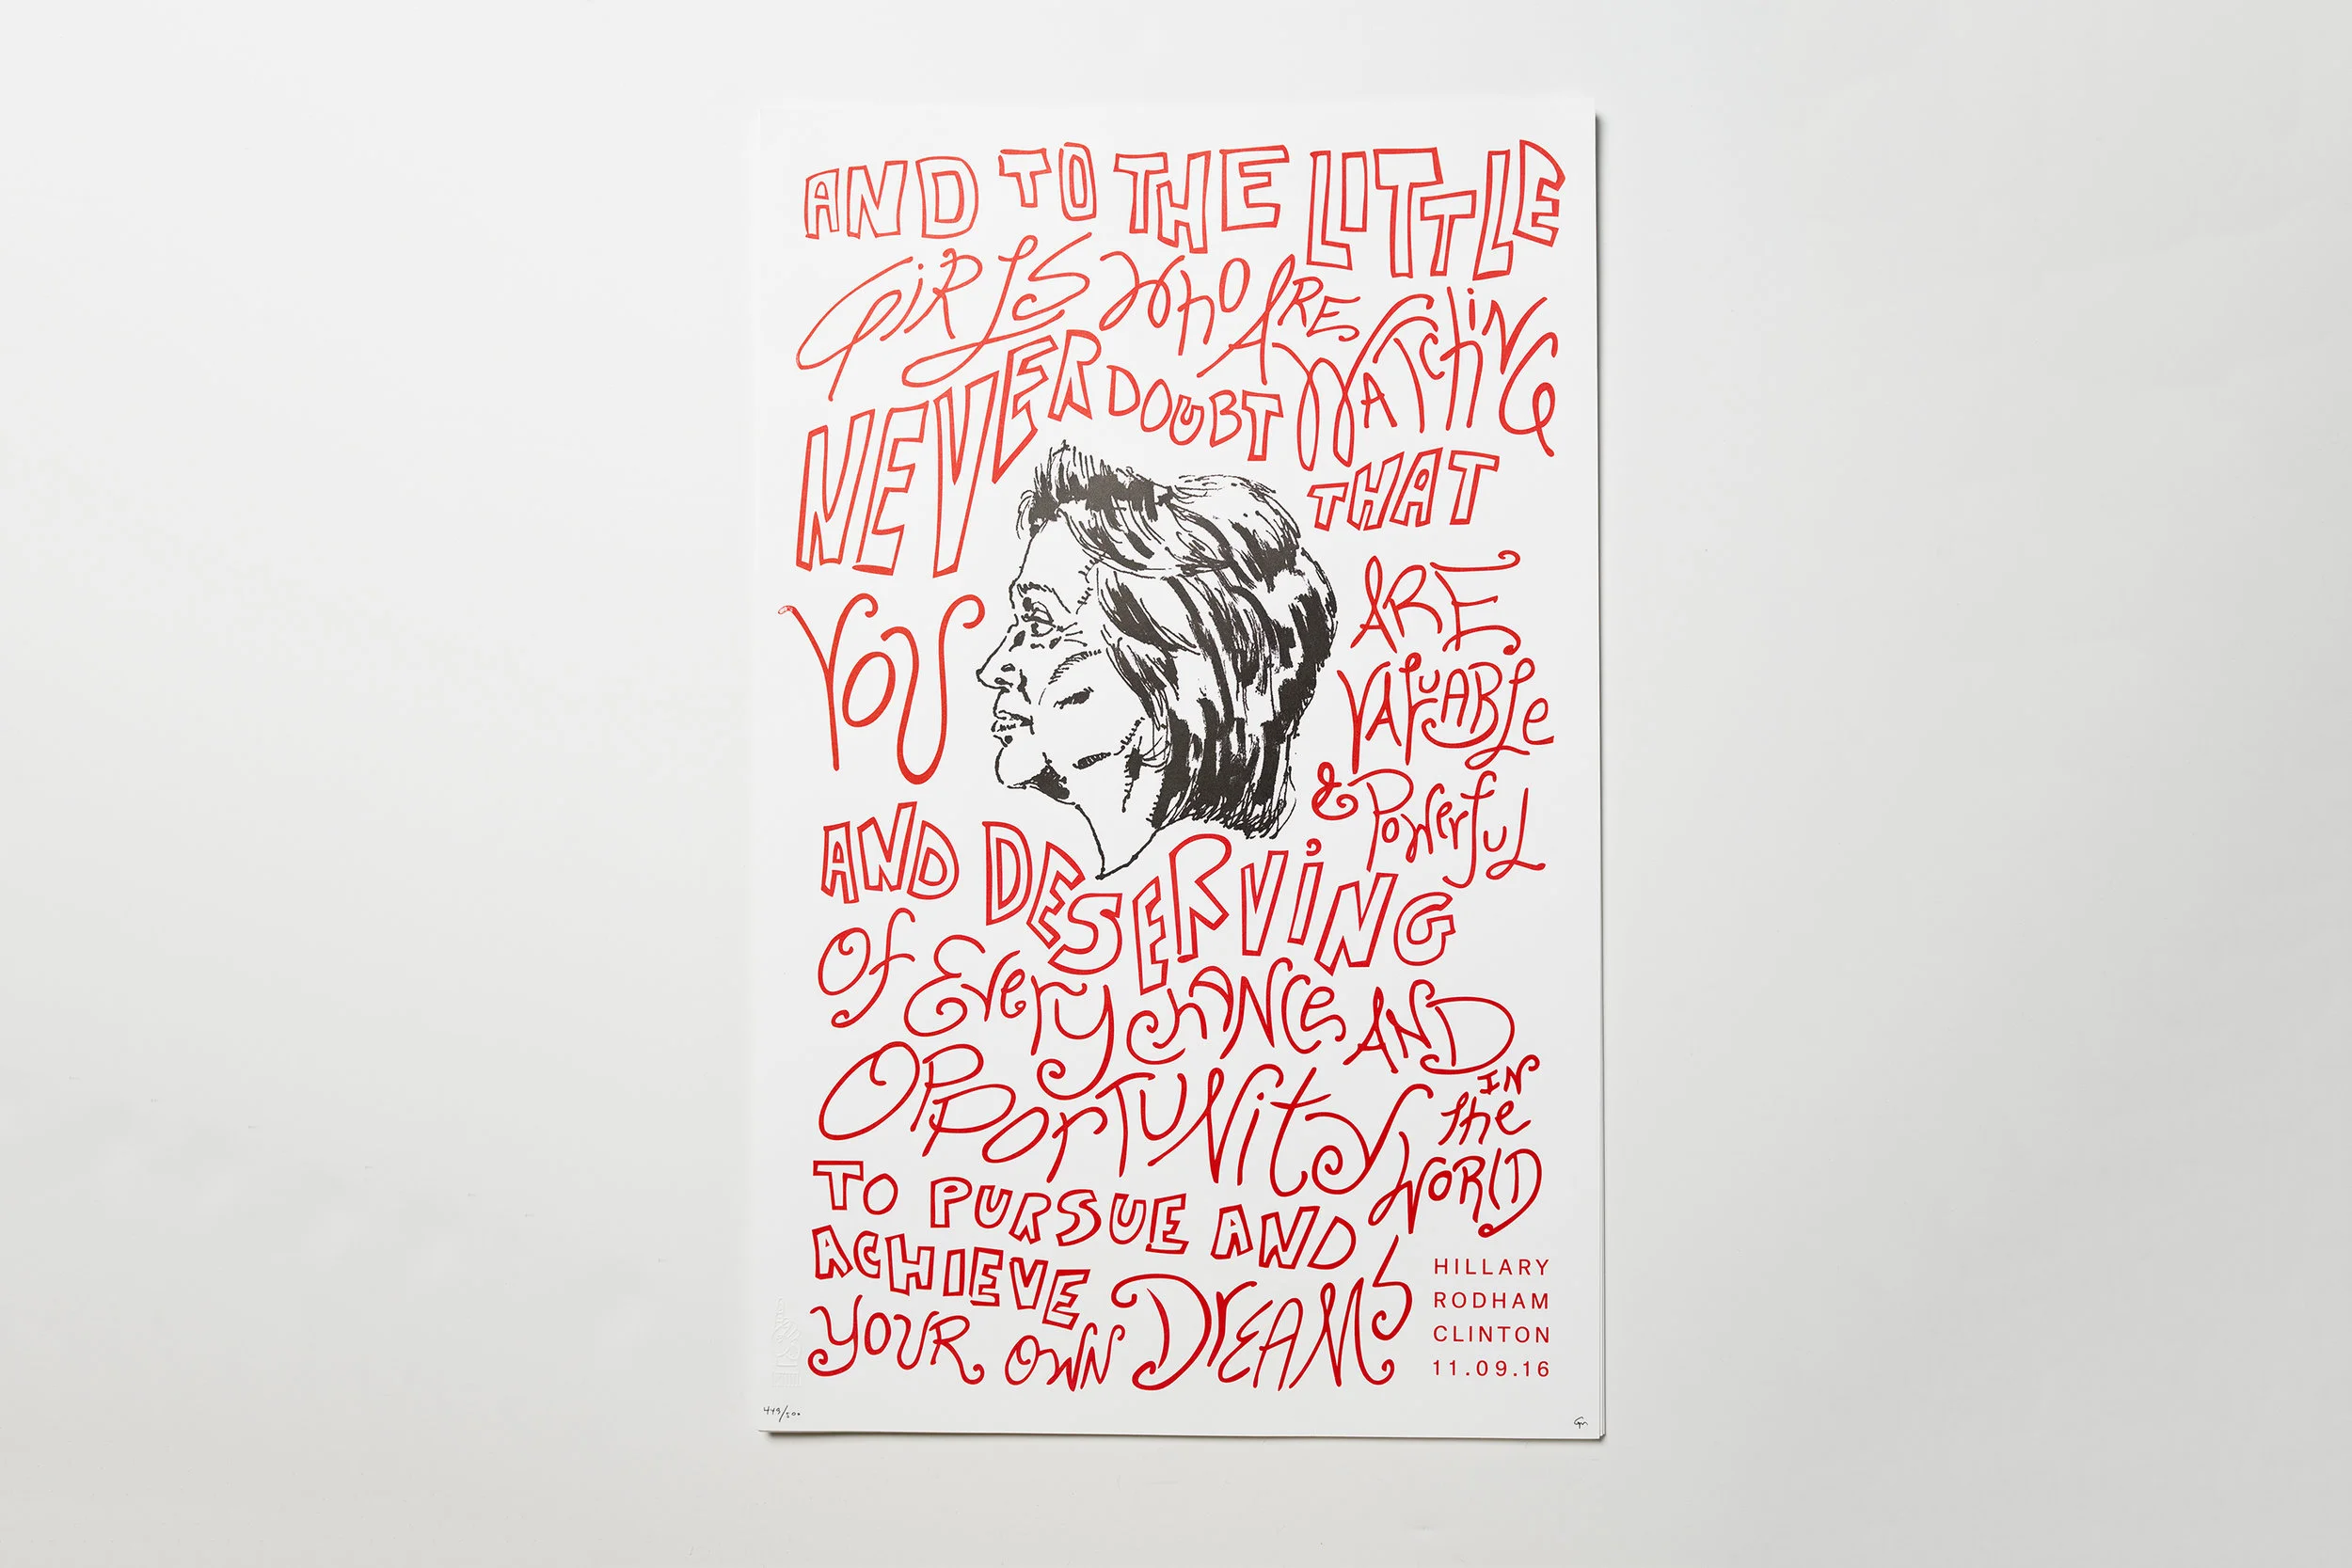 AND TO THE LITTLE
GiRLS Who ARE WATChiNG
NEVER DOUBT
THAT
YOU
ARE
VALuABLe
& Powerful
AND DESERViNG
Of EVery ChANCe AND
OPPOrTUNitY IN
the
WORlD
TO PURSUE AND
ACHIEVE
YOUR OWN DrEAMS
HILLARY
RODHAM
CLINTON
11.09.16